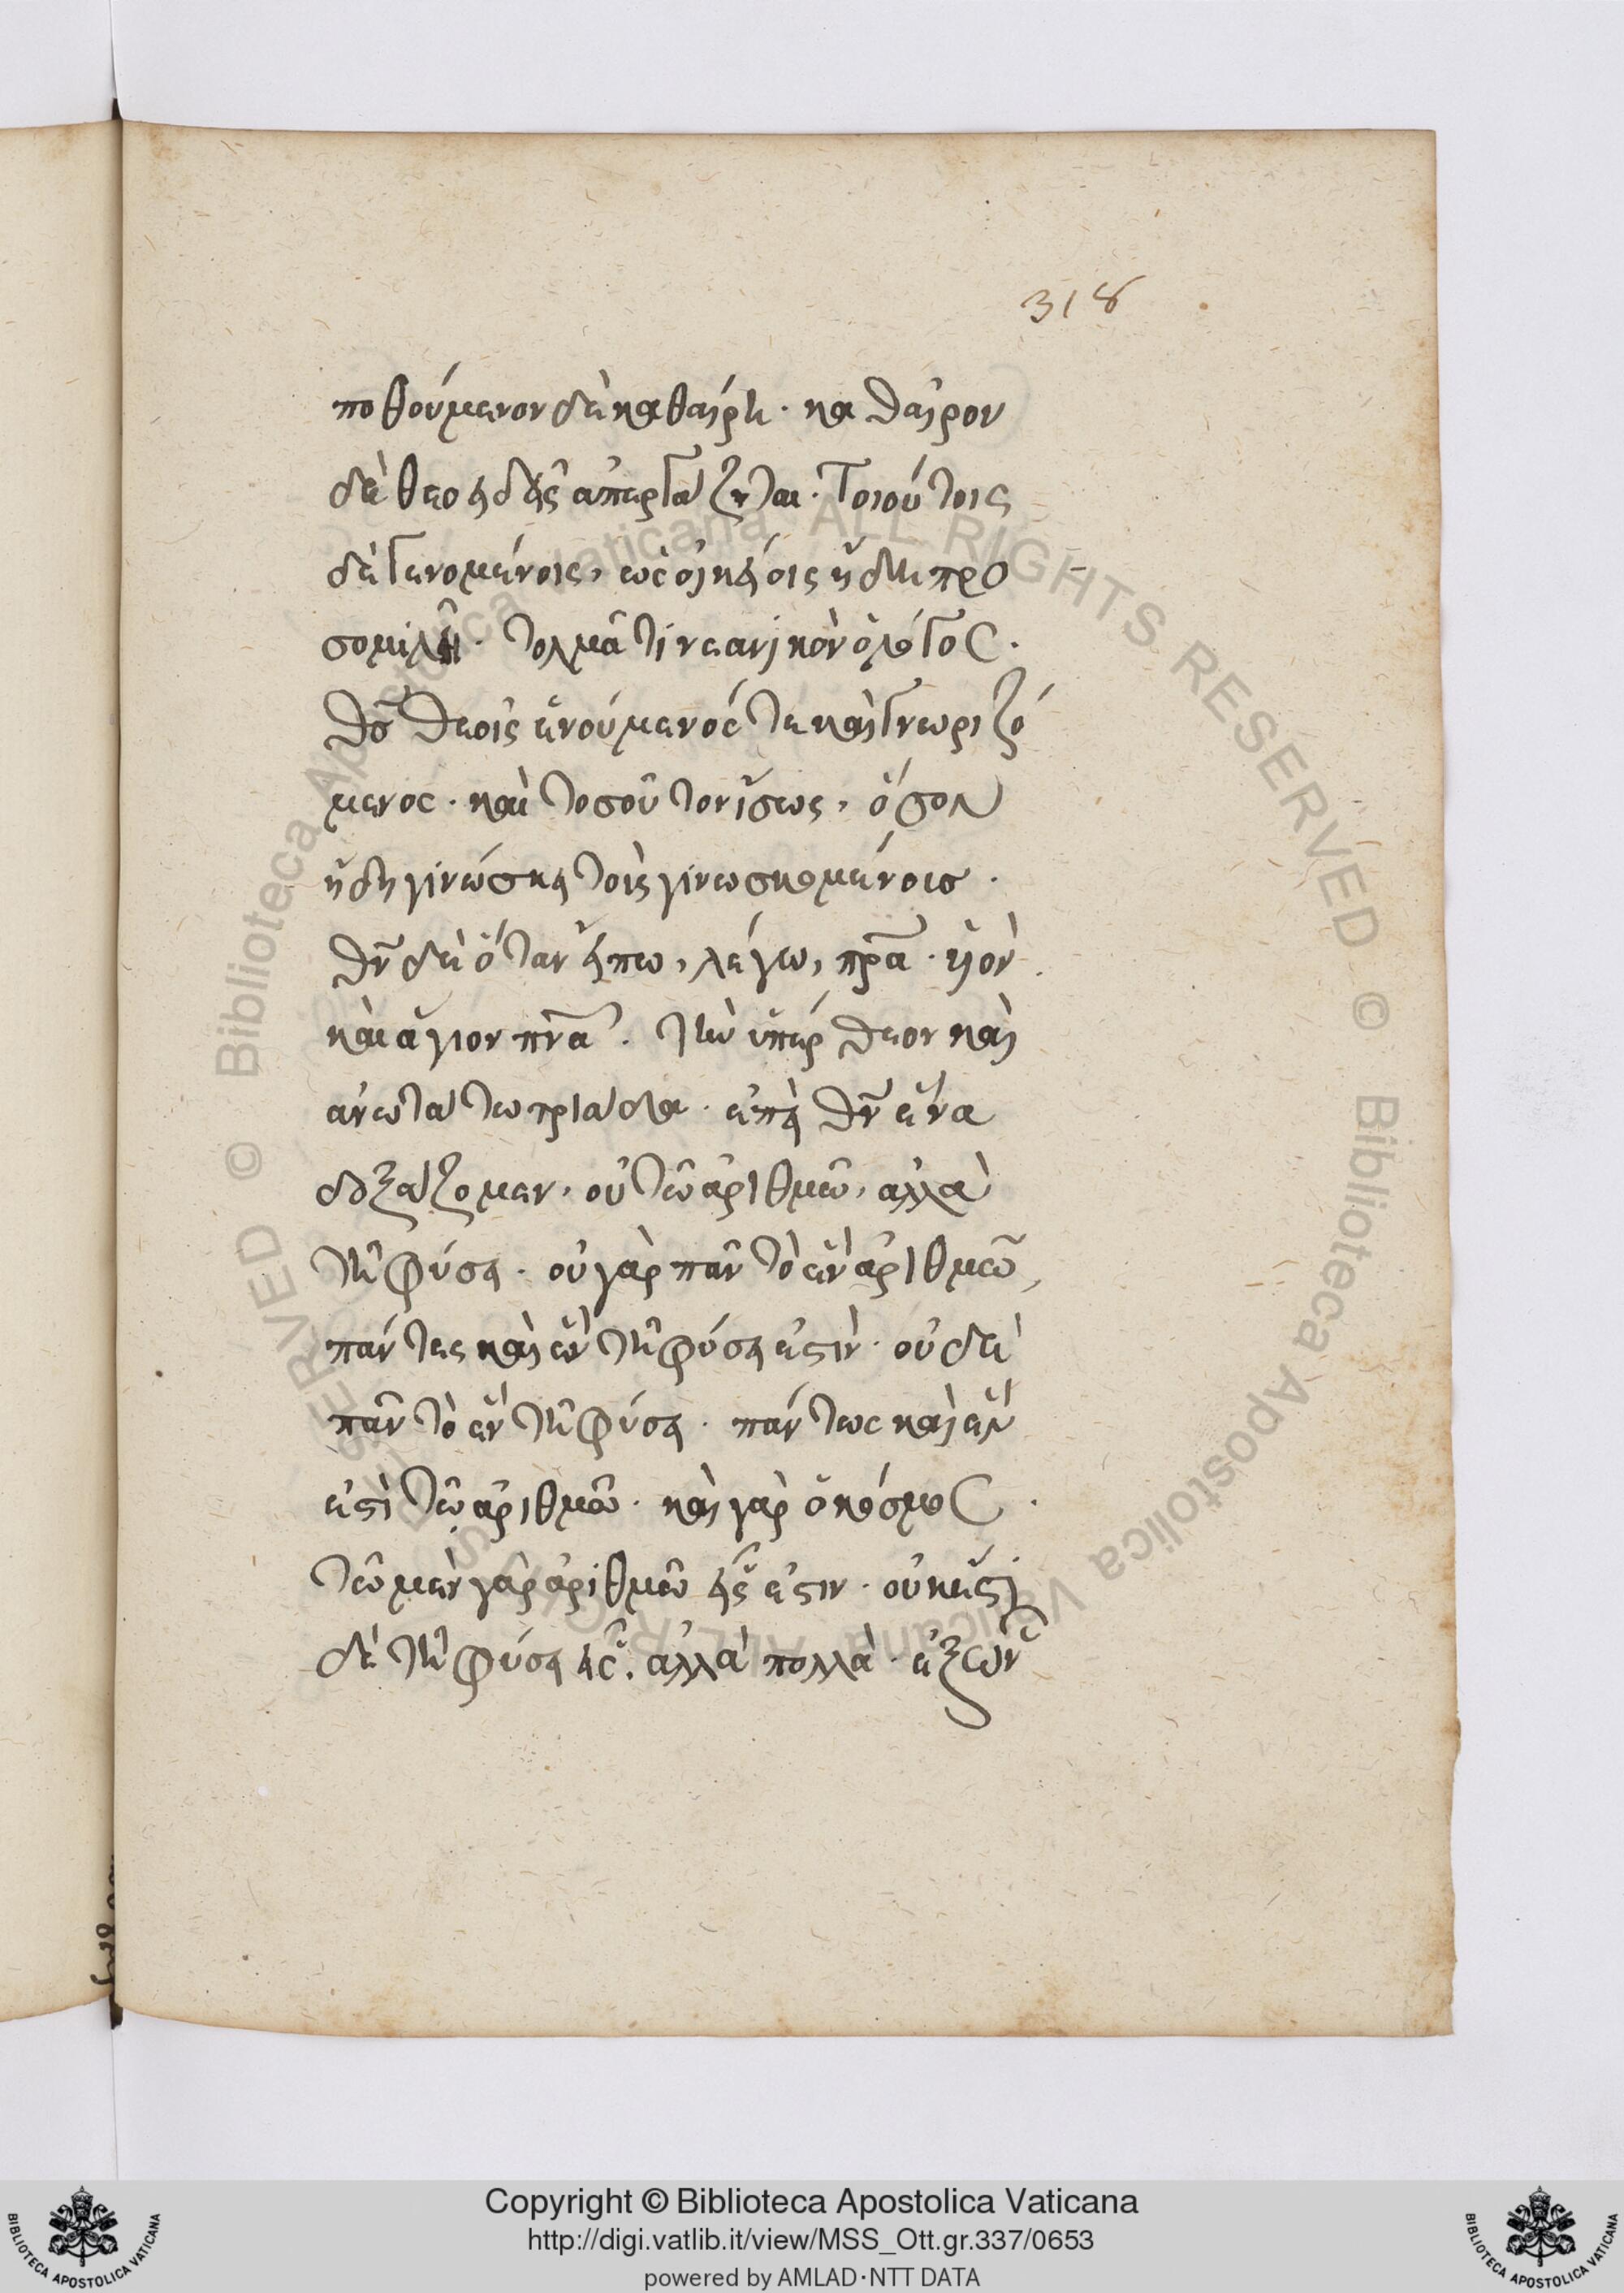 318
ποθούμενον δὲ καθαίρη· καθαῖρον
δὲ θεοειδεῖς ἀπεργάζηται· τοιούτοις
δὲ γενομένοις, ὡς οἰκείοις ἤδη προ
σομιλῆ· τολμᾶ τι νεανικὸν ὁ λόγος·
θς̅ θεοῖς ἑνούμενός τε καὶ γνωριζό
μενος· καὶ τοσοῦτον ἴσως, ὅσον
ἤδη γινώσκει τοῖς γινωσκομένοις·
θν̅ δὲ ὅταν εἴπω, λέγω, πρ̅α· υἱὸν
καὶ ἅγιον πν̅α· τὴν ὑπέρθεον καὶ
ἀνωτάτω τριάδα· ἐπεὶ θν̅ ἕνα
δοξάζομεν, οὐ τῶ ἀριθμῶ, ἀλλὰ
τῆ φύσει· οὐ γὰρ πᾶν τὸ ἓν ἀριθμῶ,
πάντες καὶ ἓν τῆ φύσει ἐστὶν· οὐδὲ
πᾶν τὸ ἓν τῆ φύσει· πάντως καὶ ἓν
ἐστὶ τῶ ἀριθμῶ· καὶ γὰρ ὁ κόσμος·
τῶ μὲν γὰρ ἀριθμῶ εἷς ἐστιν· οὐκ ἔστι
δὲ τῆ φύσει εἷς· ἀλλὰ πολλὰ· ἐξ ὧν
© Biblioteca Apostolica Vaticana ALL RIGHTS RESERVED © Biblioteca Apostolica Vaticana ALL RIGHTS RESERVED
Copyright © Biblioteca Apostolica Vaticana
http://digi.vatlib.it/view/MSS_Ott.gr.337/0653
powered by AMLAD·NTT DATA
BIBLIOTECA APOSTOLICA VATICANA
BIBLIOTECA APOSTOLICA VATICANA